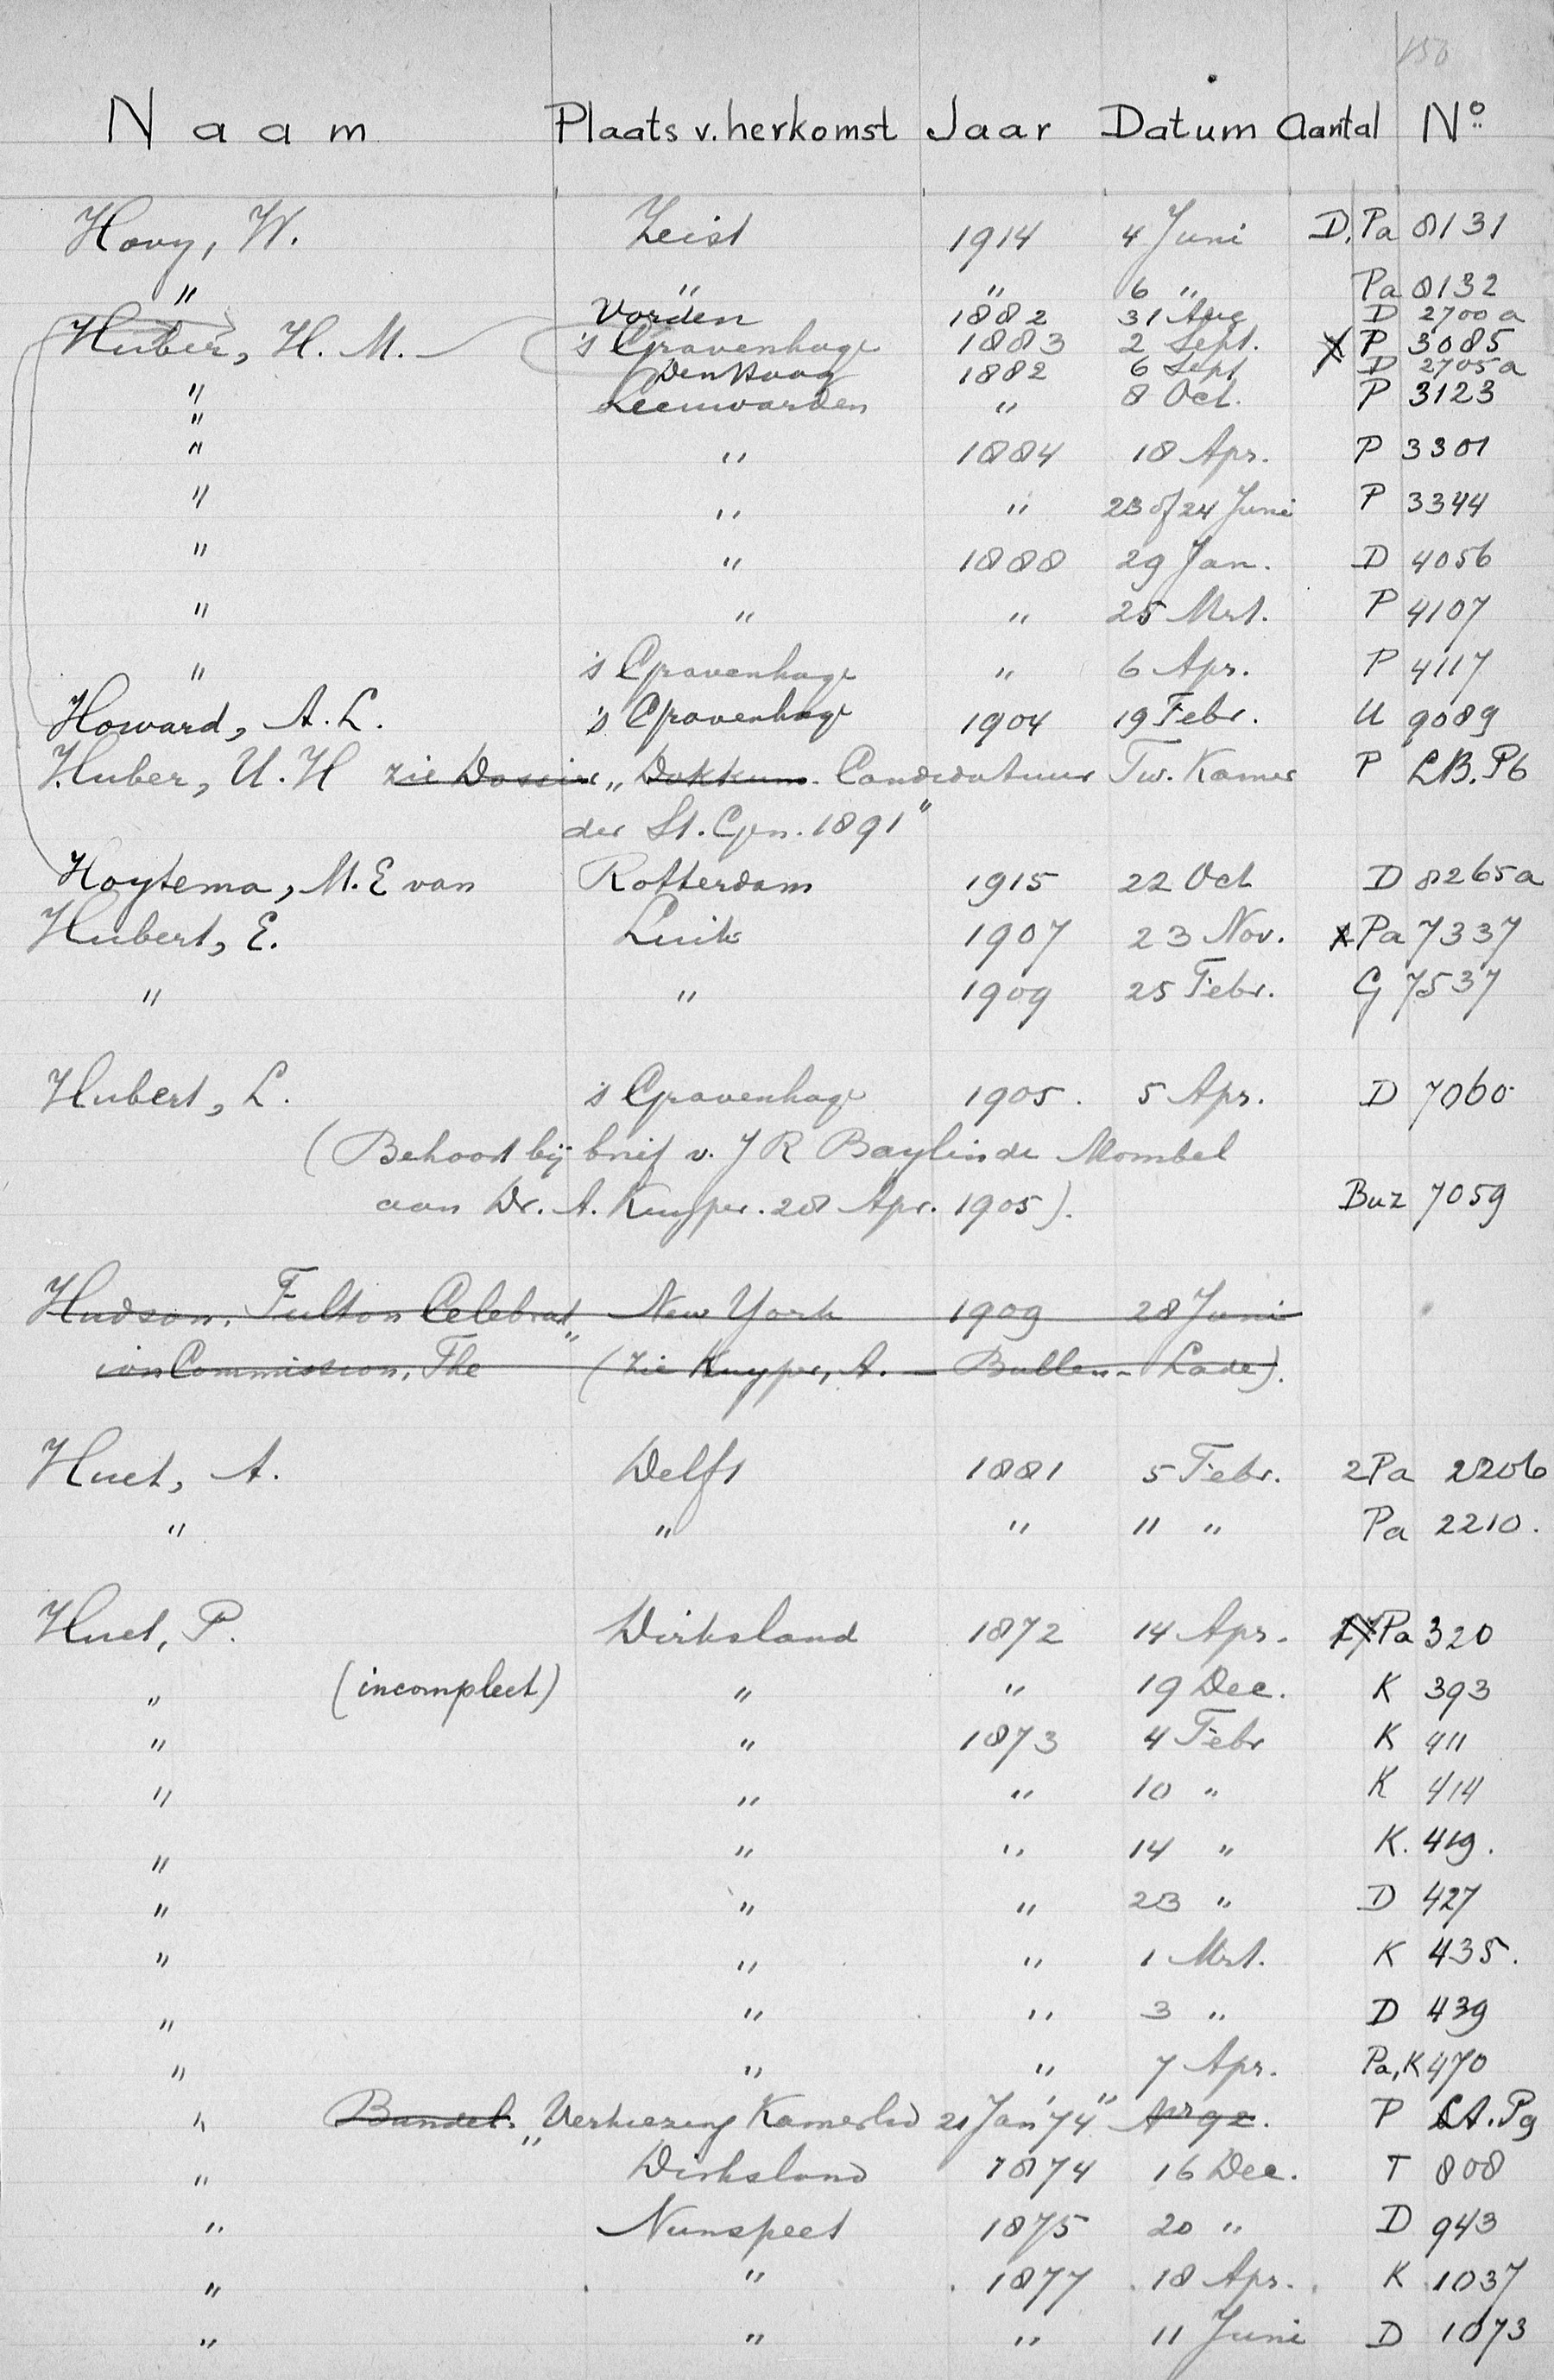 150
Naam Plaats v. herkomst Jaar Datum Aantal No
Hovy, W. Zeist 1914 4 Juni D. Pa 8131
" " " 6 " Pa 8132
Vorden 1882 31 Aug D 2700a
Huber, H. M. 's Gravenhage 1883 2 Sept. P 3085
" Den Haag 1882 6 Sept D 2705a
" Leeuwarden " 8 Oct. P 3123
" " 1884 18 Apr. P 3301
" " " 23 of 24 Juni P 3344
" " 1888 29 Jan. D 4056
" " " 25 Mrt. P 4107
" 's Gravenhage " 6 Apr. P 4117
Howard, A. L. 's Gravenhage 1904 19 Febr. U 9089
Huber, U. H zie Dossier „Dokkum. Candidatuur Tw. Kamer P LB. P6
der St. Gen. 1891"
Hoytema, M. E van Rotterdam 1915 22 Oct D 8265a
Hubert, E. Luik 1907 23 Nov. Pa 7337
" " 1909 25 Febr. G 7537
Hubert, L. 's Gravenhage 1905. 5 Apr. D 7060
(Behoort bij brief v. J R Baylinde Mombel
aan Dr. A. Kuyper. 28 Apr. 1905). Buz 7059
Hudson, Fulton Celebrat" New York 1909 28 Juni
ion Commission, The (zie Kuyper, A. — Bullen-Lade).
Huet, A. Delft 1881 5 Febr. 2Pa 2206
" " " 11 " Pa 2210.
Huet, P. Dirksland 1872 14 Apr. Pa 320
" (incompleet) " " 19 Dec. K 393
" " 1873 4 Febr K 411
" " " 10 " K 414
" " " 14 " K. 419.
" " " 23 " D 427
" " " 1 Mrt. K 435.
" " " 3 " D 439
" " " 7 Apr. Pa, K 470
" Bundel: „Verkiezing Kamerlid 21 Jan '74" P LA. P9
" Dirksland 1874 16 Dec. T 808
" Nunspeet 1875 20 " D 943
" " 1877 18 Apr. K 1037
" " " 11 Juni D 1073